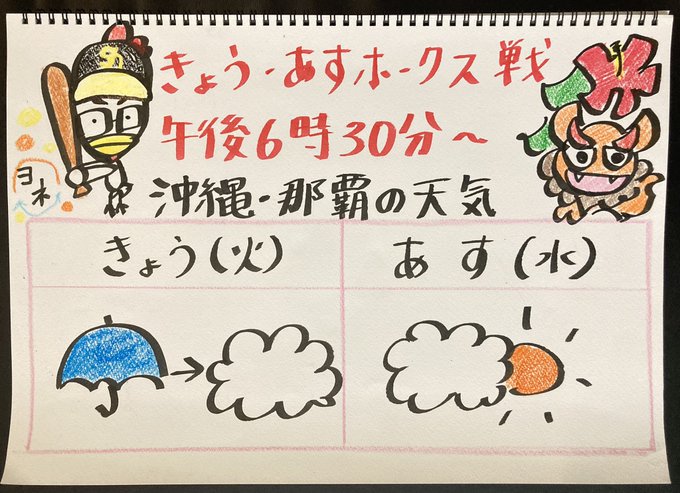 きょう・あすホークス戦
午後6時30分～
ヨネ
沖縄・那覇の天気
きょう(火)
あす(水)